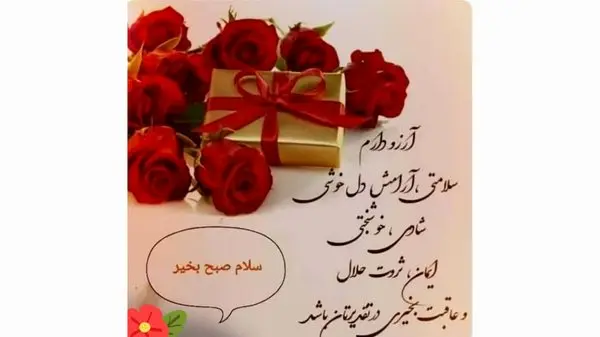 آرزو دارم
سلامتی، آرامش دل خوشی
شادی، خوشبختی
ایمان، ثروت حلال
و عاقبت بخیری در تقدیرتان باشد
سلام صبح بخیر